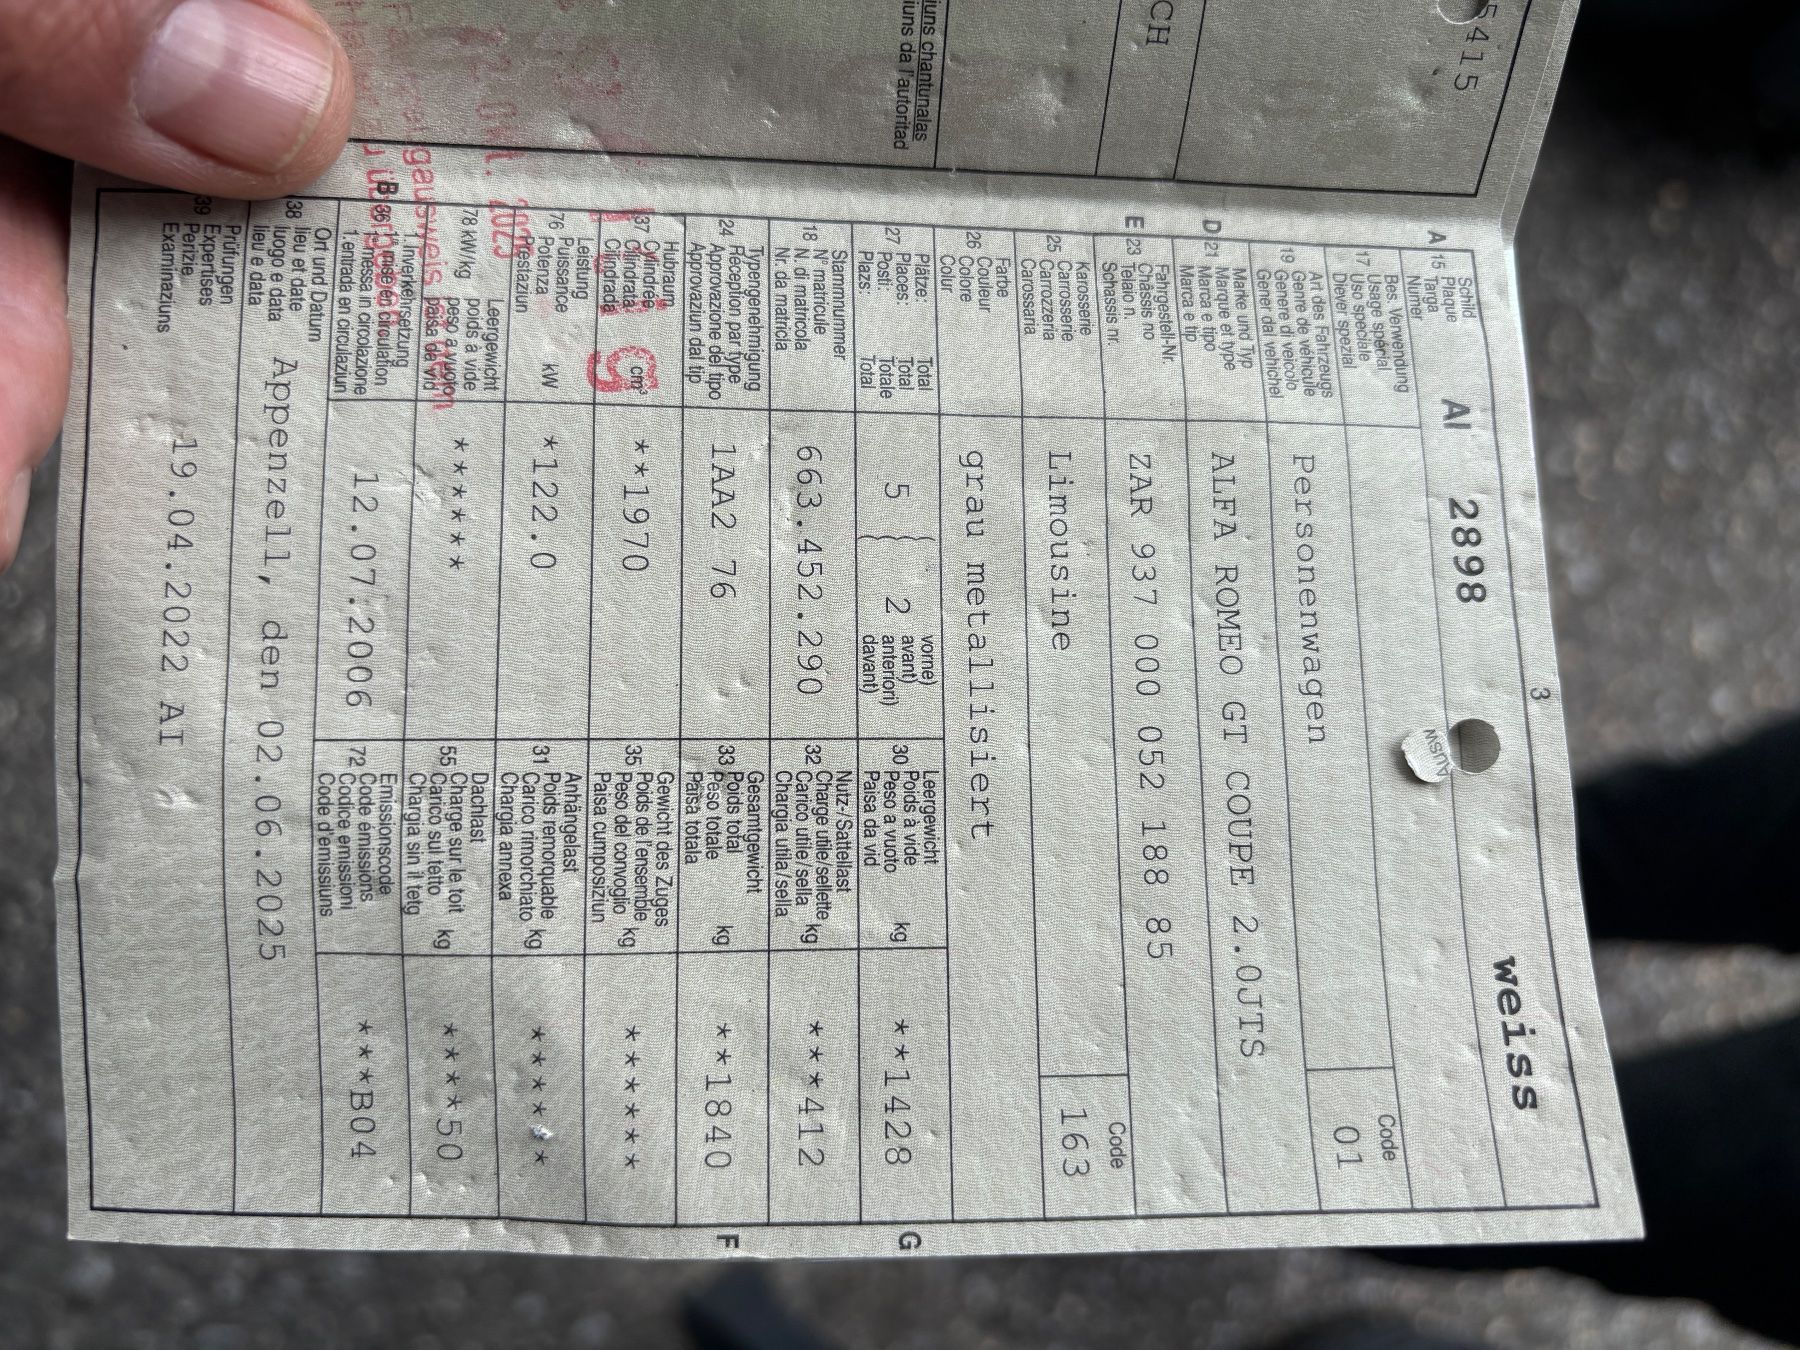 5415
CH
iuns chantunalas
iuns da l'autoritad
3
weiss
A 15 Schild
Plaque
Targa
Numer
AI 2898
AUSW
17 Bes. Verwendung
Usage spécial
Uso speciale
Diever spezial
19 Art des Fahrzeugs
Genre de véhicule
Genere di veicolo
Gener dal vehichel
Personenwagen
Code
01
D 21 Marke und Typ
Marque et type
Marca e tipo
Marca e tip
ALFA ROMEO GT COUPE 2.0JTS
E 23 Fahrgestell-Nr.
Châssis no
Telaio n.
Schassis nr.
ZAR 937 000 052 188 85
25 Karosserie
Carrosserie
Carrozzeria
Carossaria
Limousine
Code
163
26 Farbe
Couleur
Colore
Colur
grau metallisiert
27 Plätze: Total
Places: Total
Posti: Totale
Plazs: Total
5 2
vorne)
avant)
anteriori)
davant)
30 Leergewicht
Poids à vide
Peso a vuoto
Paisa da vid kg
**1428
G
18 Stammnummer
N° matricule
N. di matricola
Nr. da matricla
663.452.290
32 Nutz-/Sattellast
Charge utile/sellette
Carico utile/sella
Chargia utila/sella kg
***412
24 Typengenehmigung
Réception par type
Approvazione del tipo
Approvaziun dal tip
1AA2 76
33 Gesamtgewicht
Poids total
Peso totale
Paisa totala kg
**1840
F
37 Hubraum
Cylindrée
Cilindrata
Cilindrada cm³
**1970
35 Gewicht des Zuges
Poids de l'ensemble
Peso del convoglio
Paisa cumposiziun kg
******
76 Leistung
Puissance
Potenza
Prestaziun kW
*122.0
31 Anhängelast
Poids remorquable
Carico rimorchiato
Chargia annexa kg
******
78 kW/kg
Leergewicht
poids à vide
peso a vuoto
paisa da vid
******
55 Dachlast
Charge sur le toit
Carico sul tetto
Chargia sin il tetg kg
****50
B 36 1. Inverkehrsetzung
1re mise en circulation
1. messa in circolazione
1. entrada en circulaziun
12.07.2006
72 Emissionscode
Code émissions
Codice emissioni
Code d'emissiuns
***B04
38 Ort und Datum
lieu et date
luogo e data
lieu e data
Appenzell, den 02.06.2025
39 Prüfungen
Expertises
Perizie
Examinaziuns
19.04.2022 AI